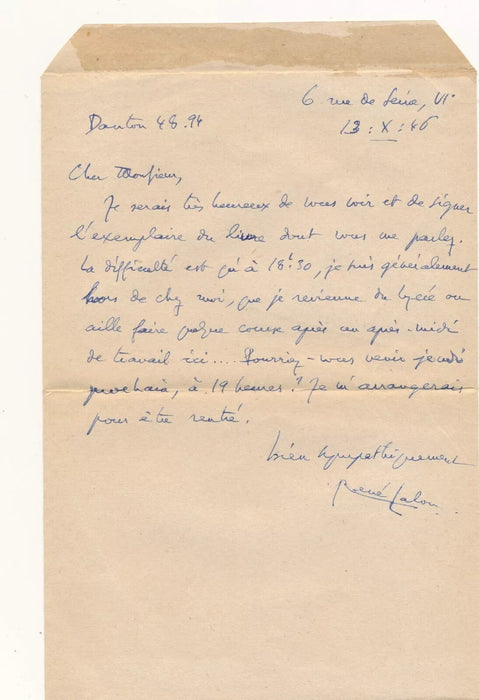 6 rue de Seine, VIe
Danton 48.94
13 : X : 46
Cher Monsieur,
Je serais très heureux de vous voir et de signer
l'exemplaire du livre dont vous me parlez.
La difficulté est qu'à 18h30, je suis généralement
hors de chez moi, que je revienne du lycée ou
aille faire quelque course après un après-midi
de travail ici.... Pourriez-vous venir jeudi
prochain, à 19 heures ? Je m'arrangerais
pour être rentré.
bien sympathiquement
René Lalou